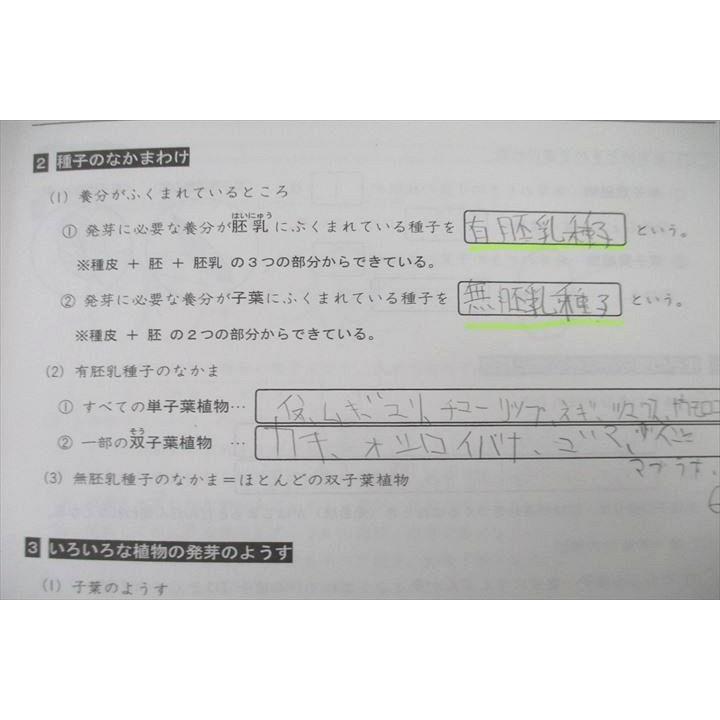 2 種子のなかまわけ
(1) 養分がふくまれているところ
① 発芽に必要な養分が胚乳にふくまれている種子を 有胚乳種子 という。
はいにゅう
※種皮 + 胚 + 胚乳 の3つの部分からできている。
② 発芽に必要な養分が子葉にふくまれている種子を 無胚乳種子 という。
※種皮 + 胚 の2つの部分からできている。
(2) 有胚乳種子のなかま
① すべての単子葉植物… ムギ、ユリ、チューリップ、ネギ、
そう
② 一部の双子葉植物 … カキ、オシロイバナ、ゴマ、
(3) 無胚乳種子のなかま=ほとんどの双子葉植物
3 いろいろな植物の発芽のようす
(1) 子葉のようす